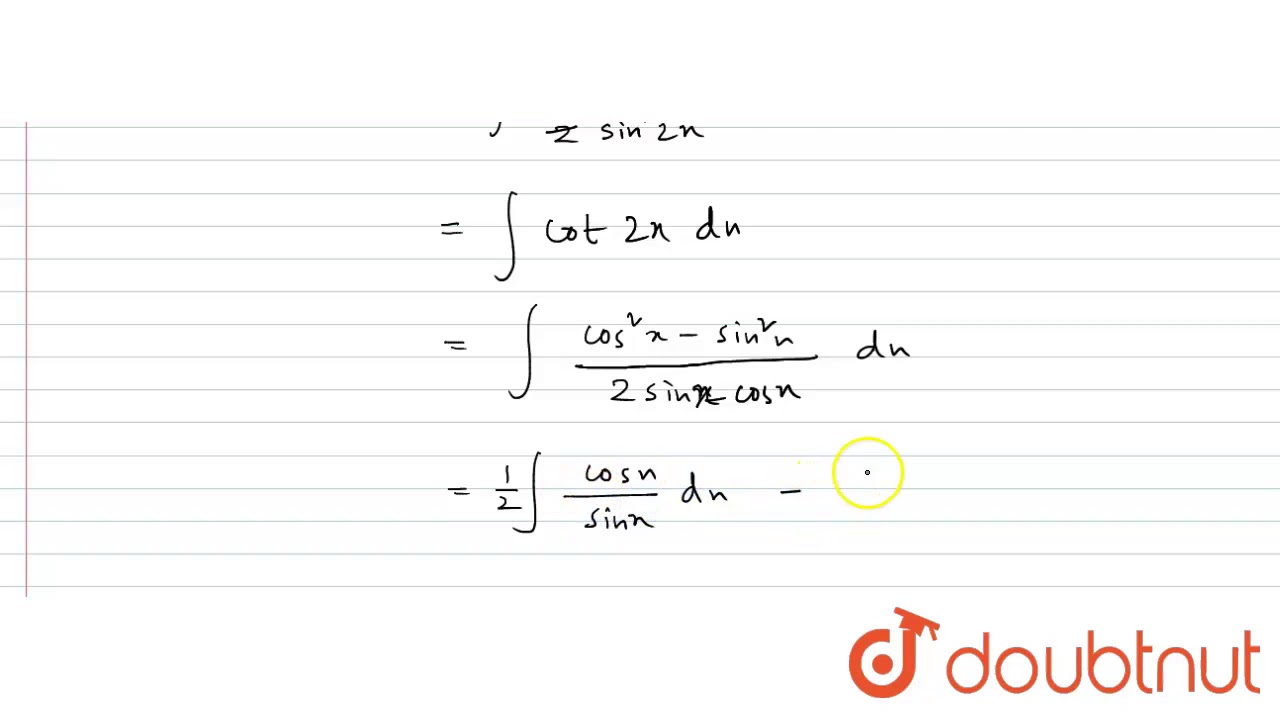 ∫ 2 sin 2x
= ∫ cot 2x dx
= ∫ (cos²x − sin²x) / (2 sinx cosx) dx
= 1/2 ∫ cosx / sinx dx −
doubtnut